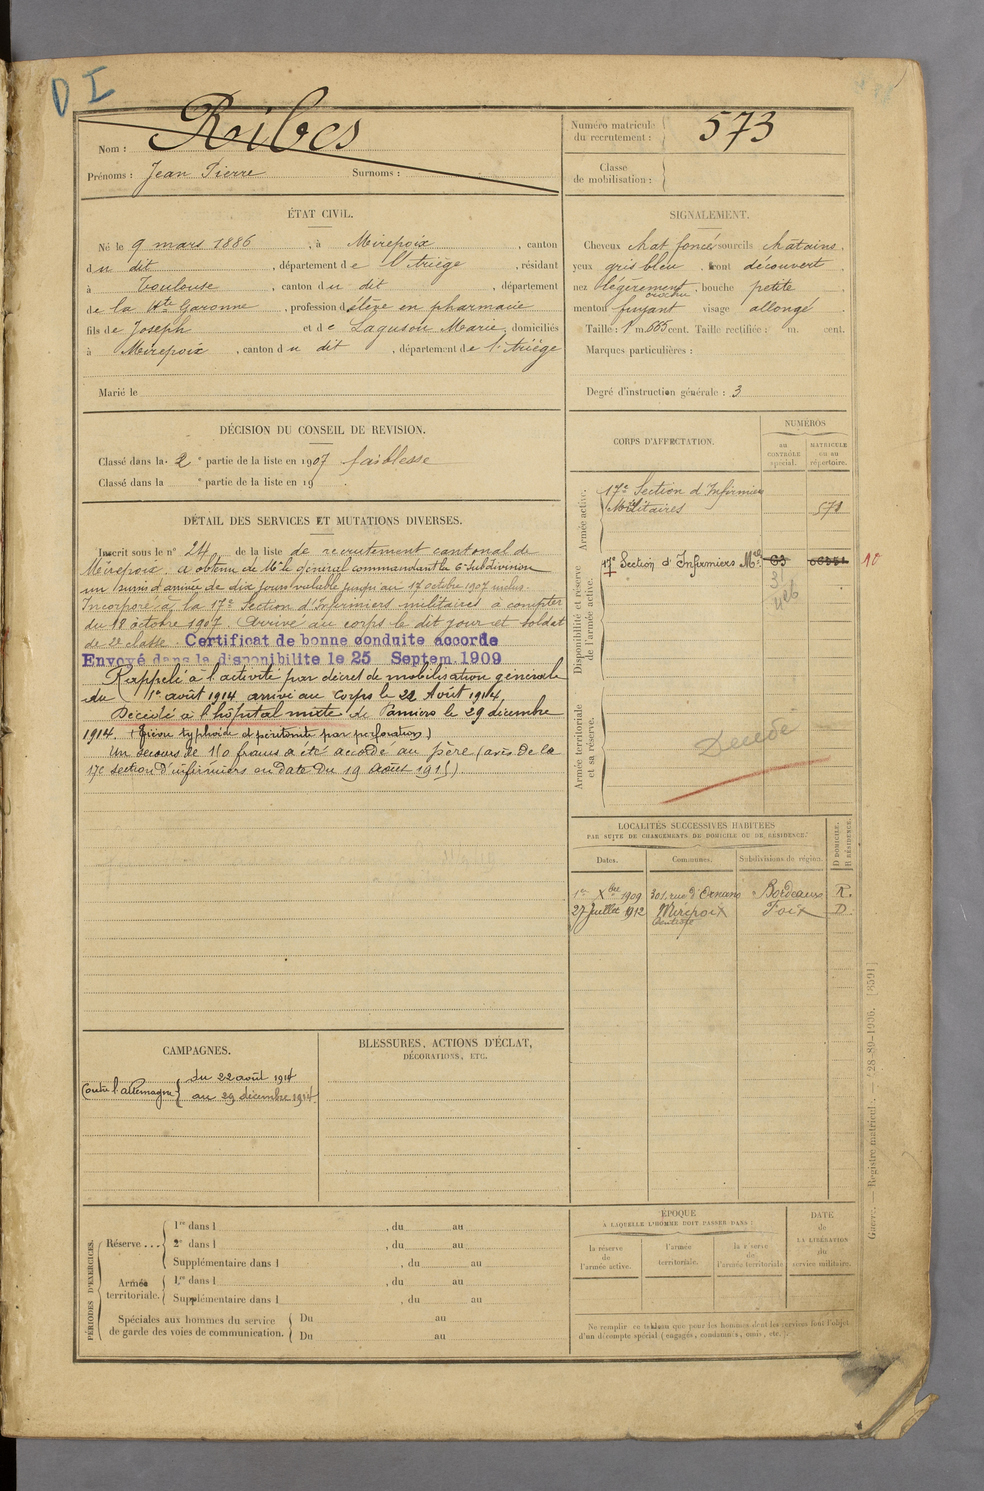 D I
Nom : Ribes
Prénoms : Jean Pierre Surnoms :
Numéro matricule
du recrutement : 573
Classe
de mobilisation :
ÉTAT CIVIL.
Né le 9 mars 1886, à Mirepoix, canton
du dit, département de l'Ariège, résidant
à Toulouse, canton du dit, département
de la Hte Garonne, profession d'élève en pharmacie
fils de Joseph et de Laguson Marie, domiciliés
à Mirepoix, canton du dit, département de l'Ariège
Marié le
SIGNALEMENT.
Cheveux chat. foncé sourcils châtains,
yeux gris bleu, front découvert
nez légèrement crochu, bouche petite,
menton fuyant visage allongé.
Taille : 1 m. 665 cent. Taille rectifiée : m. cent.
Marques particulières :
Degré d'instruction générale : 3
DÉCISION DU CONSEIL DE REVISION.
Classé dans la 2e partie de la liste en 1907 faiblesse
Classé dans la e partie de la liste en 19
DÉTAIL DES SERVICES ET MUTATIONS DIVERSES.
Inscrit sous le n° 24 de la liste de recrutement cantonal de
Mirepoix. A obtenu de Mr le général commandant la 6e Subdivision
un sursis d'arrivée de dix jours valable jusqu'au 17 octobre 1907 inclus.
Incorporé à la 17e Section d'Infirmiers militaires à compter
du 18 octobre 1907. Arrivé au corps le dit jour et soldat
de 2e classe. Certificat de bonne conduite accordé
Envoyé dans la disponibilité le 25 Septem. 1909
Rappelé à l'activité par décret de mobilisation générale
du 1er août 1914 arrivé au corps le 22 Août 1914.
Décédé à l'hôpital mixte de Pamiers le 29 décembre
1914. (Fièvre typhoïde et péritonite par perforation)
Un secours de 150 francs a été accordé au père (avis de la
17e section d'infirmiers en date du 19 Août 1915).
CORPS D'AFFECTATION.
NUMÉROS
au
CONTRÔLE
spécial.
MATRICULE
ou au
répertoire.
Armée active.
17e Section d'Infirmiers
Militaires 571
Disponibilité et réserve
de l'armée active.
17e Section d'Infirmiers Mres 63 10
Armée territoriale
et sa réserve.
Décédé
LOCALITÉS SUCCESSIVES HABITÉES
PAR SUITE DE CHANGEMENTS DE DOMICILE OU DE RÉSIDENCE.
Dates. Communes. Subdivisions de région. D DOMICILE. R RÉSIDENCE.
1er Xbre 1909 301, rue d'Ornano Bordeaux R.
27 Juillet 1912 Mirepoix Foix D.
CAMPAGNES.
Contre l'Allemagne { du 22 août 1914
au 29 décembre 1914
BLESSURES, ACTIONS D'ÉCLAT,
DÉCORATIONS, ETC.
PÉRIODES D'EXERCICES.
Réserve ... { 1re dans l , du au
2e dans l , du au
Supplémentaire dans l , du au
Armée
territoriale. { 1re dans l , du au
Supplémentaire dans l , du au
Spéciales aux hommes du service
de garde des voies de communication. { Du au
Du au
ÉPOQUE
À LAQUELLE L'HOMME DOIT PASSER DANS :
la réserve
de
l'armée active.
l'armée
territoriale.
la réserve
de
l'armée territoriale
DATE
de
LA LIBÉRATION
du
service militaire.
Ne remplir ce tableau que pour les hommes dont les services font l'objet
d'un décompte spécial (engagés, condamnés, omis, etc.).
Guerre. — Registre matricule. — 28-89-1906. [8591]